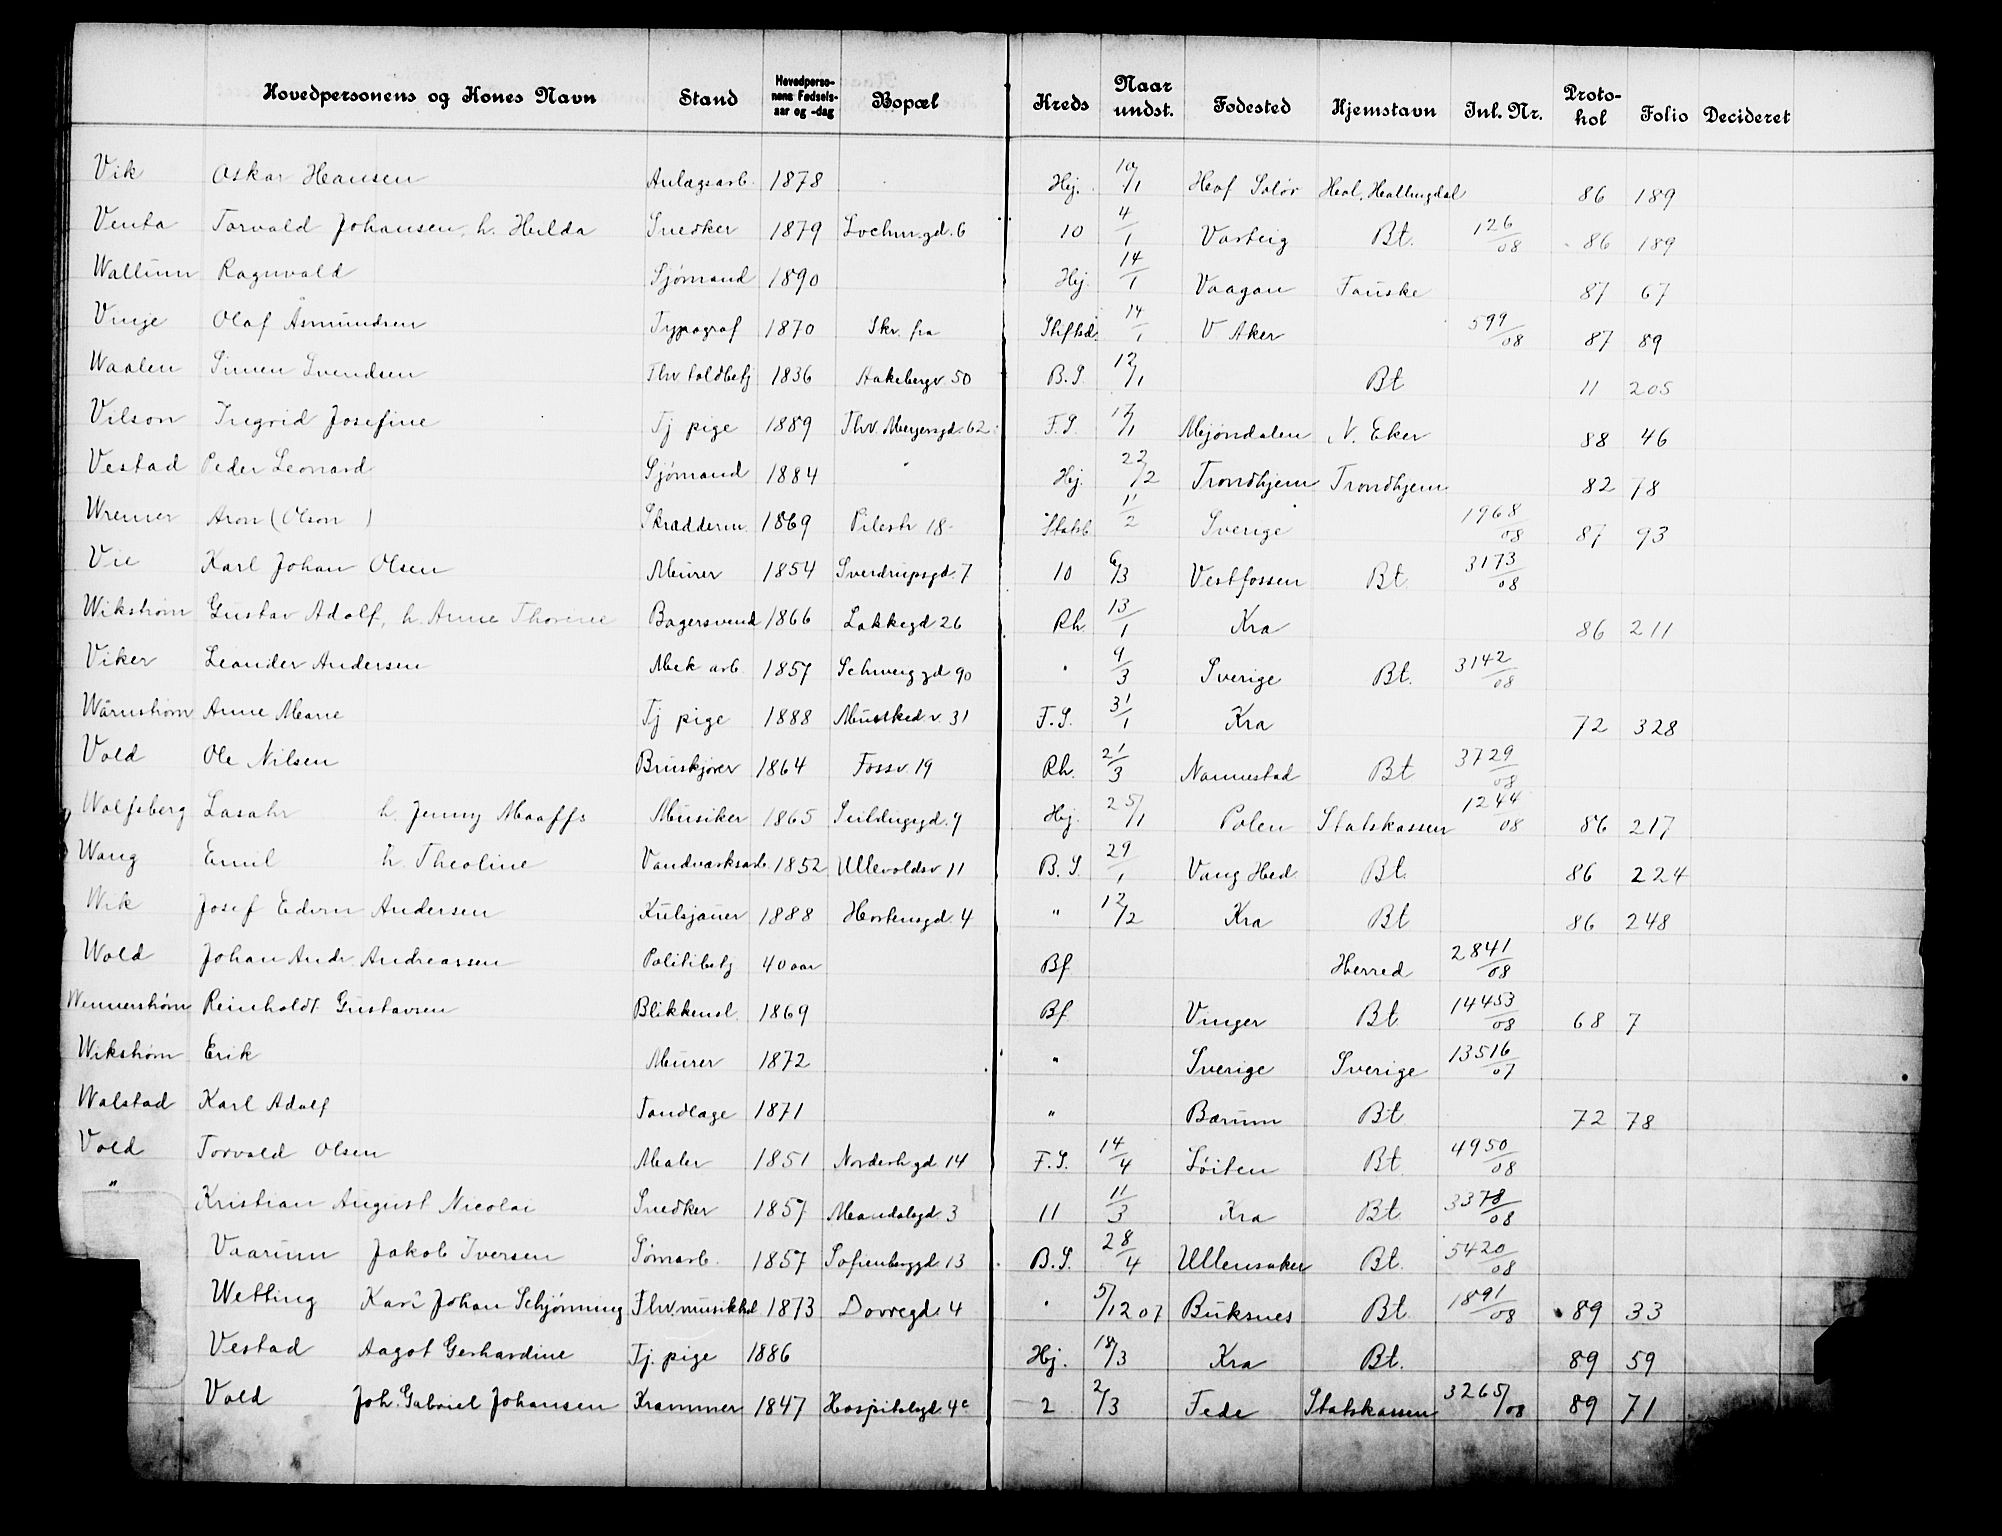 Hovedpersonens og Kones Navn Stand Hovedpersonens Fødselsaar og -dag Bopæl Kreds Naar undst. Fødested Hjemstavn Inl. Nr. Protokol Folio Decideret
Vik Oskar Hansen Anlagsarb. 1878 Hej. 10/1 Hof Solør Hol, Hallingdal 86 189
Venta Torvald Johansen, h. Hulda Snedker 1879 Lochm.gd. 6 10 4/1 Varteig Bt. 126/08 86 189
Wallum Ragnvald Sjømand 1890 Hej. 14/1 Vaagan Fauske 87 67
Vinje Olaf Åsmundsen Typograf 1870 Skr. fra Stiftsd. 14/1 V Aker 599/08 87 89
Waalen Simen Svendsen Fhv toldbetj 1836 Aakebergv. 50 B.S. 12/1 Bt 11 205
Vilson Ingrid Josefine Tj pige 1889 Thv. Meyersgd. 62 F.S. 17/1 Mjøndalen N. Eker 88 46
Vestad Peder Leonard Sjømand 1884 " Hej. 22/2 Trondhjem Trondhjem 82 78
Wremer Aron (Olson ) Skrædderm. 1869 Pilestr 18 Statsb. 11/2 Sverige 1968/08 87 93
Vie Karl Johan Olsen Murer 1854 Sverdrupsgd. 7 10 6/3 Vestfossen Bt. 3173/08
Wikstrøm Gustav Adolf, h. Anne Thorene Bagersvend 1866 Lakkegd 26 Rh. 13/1 Kra 86 211
Viker Leander Andersen Mek arb. 1857 Schweiggd 90 " 9/3 Sverige Bt. 3142/08
Wärnstrøm Anne Marie Tj pige 1888 Munked.v. 31 F.S. 31/1 Kra 72 328
Vold Ole Nilsen Bruskjører 1864 Fossv. 19 Rh. 21/3 Nannestad Bt 3729/08
Wolfsberg Lasahr h. Jenny Maaffs Musiker 1865 Seildugsgd. 9 Hej. 25/1 Polen Statskassen 1244/08 86 217
Wang Emil h. Theoline Vandværksarb. 1852 Ullevoldsv 11 B.S. 29/1 Vang Hed. Bt. 86 224
Wik Josef Edvin Andersen Kulsjauer 1888 Hortensgd. 4 " 12/2 Kra Bt 86 248
Wold Johan Andr. Andreassen Politibetj 40 aar Bf. Herred 2841/08
Wennerstrøm Reinholdt Gustavsen Blikkensl. 1869 Bf. Vinger Bt 14453/08 68 7
Wikstrøm Erik Murer 1872 " Sverige Sverige 13516/07
Walstad Karl Adolf Tandlæge 1871 " Bærum Bt 72 78
Vold Torvald Olsen Maler 1851 Norderh.gd 14 F.S. 14/4 Løiten Bt. 4950/08
" Kristian August Nicolai Snedker 1857 Mandalsgd. 3 11 11/3 Kra Bt. 3378/08
Vaarum Jakob Iversen Tømarb. 1857 Sofienberggd 13 B.S. 28/4 Ullensaker Bt. 5420/08
Wetting Karl Johan Schjønning Fhv. musikhdl 1873 Dovregd. 4 " 5/12 07 Buksnes Bt 1891/08 89 33
Vestad Aagot Gerhardine Tj. pige 1886 Hej. 18/3 Kra Bt. 89 59
Vold Joh. Gabriel Johansen Kræmmer 1847 Hospitalsgd. 4c 2 2/3 Fede Statskassen 3265/08 89 71